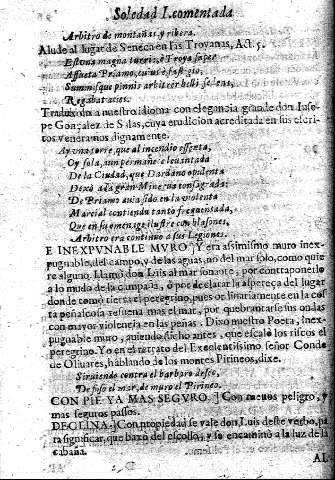 Soledad I. comentada
Arbitro de montañas, y ribera.
Alude al lugar de Seneca en las Troyanas, Act. 5.
Est una magna turris, è Troya super
Assueta Priamo, cuius è fastigio,
Summisque pinnis arbiter belli sedens,
Regebat acies.
Traduxola a nuestro idioma con elegancia grande don Iuse-
pe Gonçalez de Salas, cuya erudicion acreditada en sus escri-
tos veneramos dignamente.
Ay una torre, que al incendio essenta,
Oy sola, aun permanece leuantada
De la Ciudad, que Dardano opulenta
Dexò a la gran Minerua consagrada:
De Priamo auia sido en la violenta
Marcial contienda tanto frequentada,
Que en su omenage ilustre con blasones,
Arbitro era continuo a sus Legiones.
E INEXPVNABLE MVRO] Y era assimismo muro inex-
pugnable, del campo, y de las aguas, no del mar solo, como quie
re alguno. Llamò don Luis al mar sonante, por contraponerlo
a lo mudo de la campaña, ò por declarar la aspereça del lugar
donde tomò tierra el peregrino, pues ordinariamente en la cos
ta peñascosa resuena mas el mar, por quebrantarse sus ondas
con mayor violencia en las peñas. Dixo nuestro Poeta, inex-
pugnable muro, auiendo dicho antes, que escalò los riscos el
peregrino. Yo en el retrato del Excelentissimo señor Conde
de Oliuares, hablando de los montes Pirineos, dixe.
Siruiendo contra el barbaro desseo,
De foso el mar, de muro el Pirineo.
CON PIE YA MAS SEGVRO.] Con menos peligro, y
mas seguros passos.
DECLINA.] Con propiedad se vale don Luis deste verbo, pa
ra significar, que baxò del escollo, y se encaminò a la luz de la
cabaña.
AL